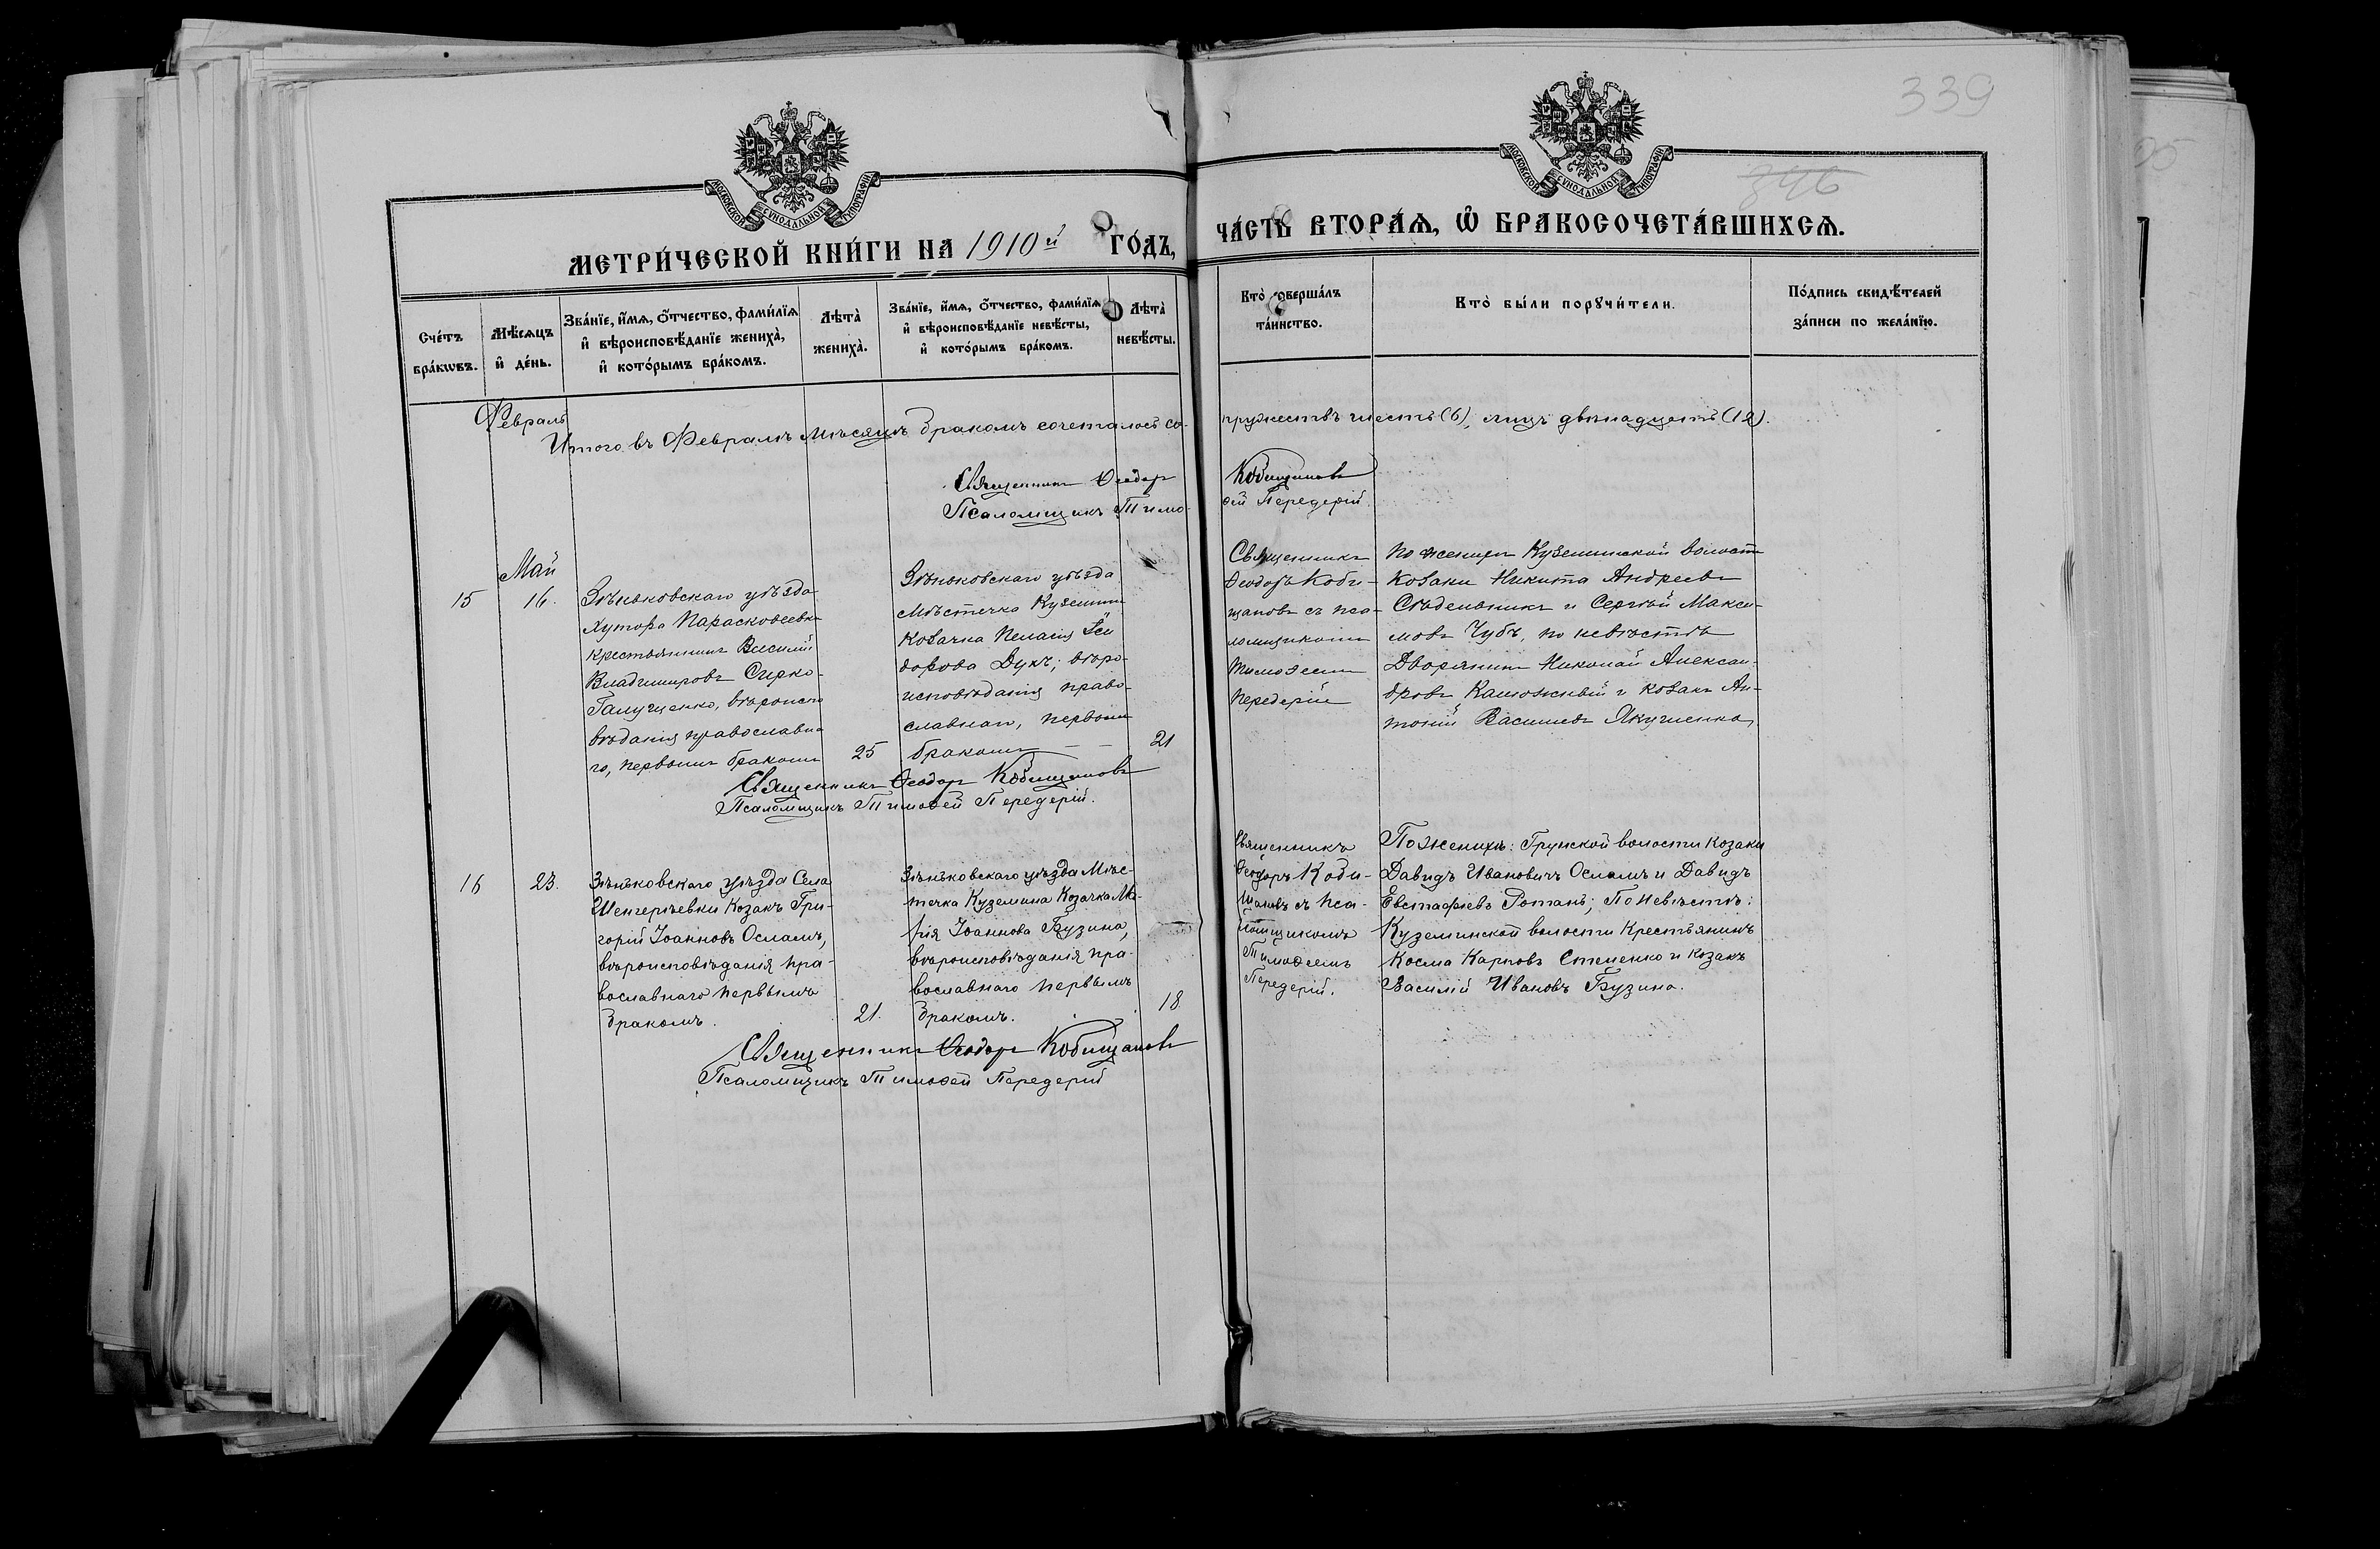 339
346
МОСКОВСКОЙ СУНОДАЛЬНОЙ ТИПОГРАФІИ
МОСКОВСКОЙ СУНОДАЛЬНОЙ ТИПОГРАФІИ
МЕТРИ́ЧЕСКОЙ КНИ́ГИ НА 1910й ГО́ДЪ,
ЧА́СТЬ ВТОРА́Ѧ, Ѽ БРАКОСОЧЕТА́ВШИХСѦ.
Сче́тъ бра́кѡвъ.
Мѣ́сѧцъ и҆ де́нь.
Зва́нїе, и҆́мѧ, ѻ҆́тчество, фами́лїѧ и҆ вѣроисповѣ́данїе жениха̀, и҆ кото́рымъ бра́комъ.
Лѣта̀ жениха̀.
Зва́нїе, и҆́мѧ, ѻ҆́тчество, фами́лїѧ и҆ вѣроисповѣ́данїе невѣ́сты, и҆ кото́рымъ бра́комъ.
Лѣта̀ невѣ́сты.
Кто̀ соверша́лъ та́инство.
Кто̀ бы́ли порꙋчи́тели.
По́дпись свидѣ́телей за́писи по жела́нїю.
Февраль
Итого въ Февралѣ мѣсяцѣ бракомъ сочеталось су-
пружествъ шесть (6), лицъ двѣнадцать (12).
Священникъ Ѳеодоръ Кобищановъ
Псаломщикъ Тимоѳей Передерій.
Май
15
16.
Зѣньковскаго уѣзда
Хутора Парасковеевки
крестьянинъ Василій
Владиміровъ Сирко-
Галущенко, вѣроиспо
вѣданія православна
го, первымъ бракомъ
25
Зѣньковскаго уѣзда
Мѣстечка Куземина
козачка Пелагія Іси
дорова Дукъ; вѣро-
исповѣданія право-
славнаго, первымъ
бракомъ
21
Священникъ
Ѳеодоръ Коби-
щановъ съ пса-
ломщикомъ
Тимоѳеемъ
Передерій
По женихѣ Куземинской волости
козаки Никита Андреевъ
и Сергѣй Макси-
мовъ Чубъ, по невѣстѣ
Дворянинъ Николай Алексан-
дровъ и козакъ Ан-
тоній Васильевъ Якушенко,
Священникъ Ѳеодоръ Кобищановъ
Псаломщикъ Тимоѳей Передерій.
16
23.
Зѣньковскаго уѣзда Села
Шенгерѣевки Козакъ Гри-
горій Іоанновъ Осламъ,
вѣроисповѣданія пра-
вославнаго первымъ
бракомъ.
21.
Зѣньковскаго уѣзда Мѣс-
течка Куземина Козачка Ма-
рія Іоаннова Бузина,
вѣроисповѣданія пра-
вославнаго первымъ
бракомъ.
18
Священникъ
Ѳеодоръ Коби-
щановъ съ пса-
ломщикомъ
Тимоѳеемъ
Передерій.
По Женихѣ: Грунской волости Козаки
Давидъ Ивановичъ Осламъ и Давидъ
Евстафіевъ Ротань; По Невѣстѣ:
Куземинской волости Крестьянинъ
Косма Карповъ Стеценко и козакъ
Василій Ивановъ Бузина.
Священникъ Ѳеодоръ Кобищановъ
Псаломщикъ Тимоѳей Передерій